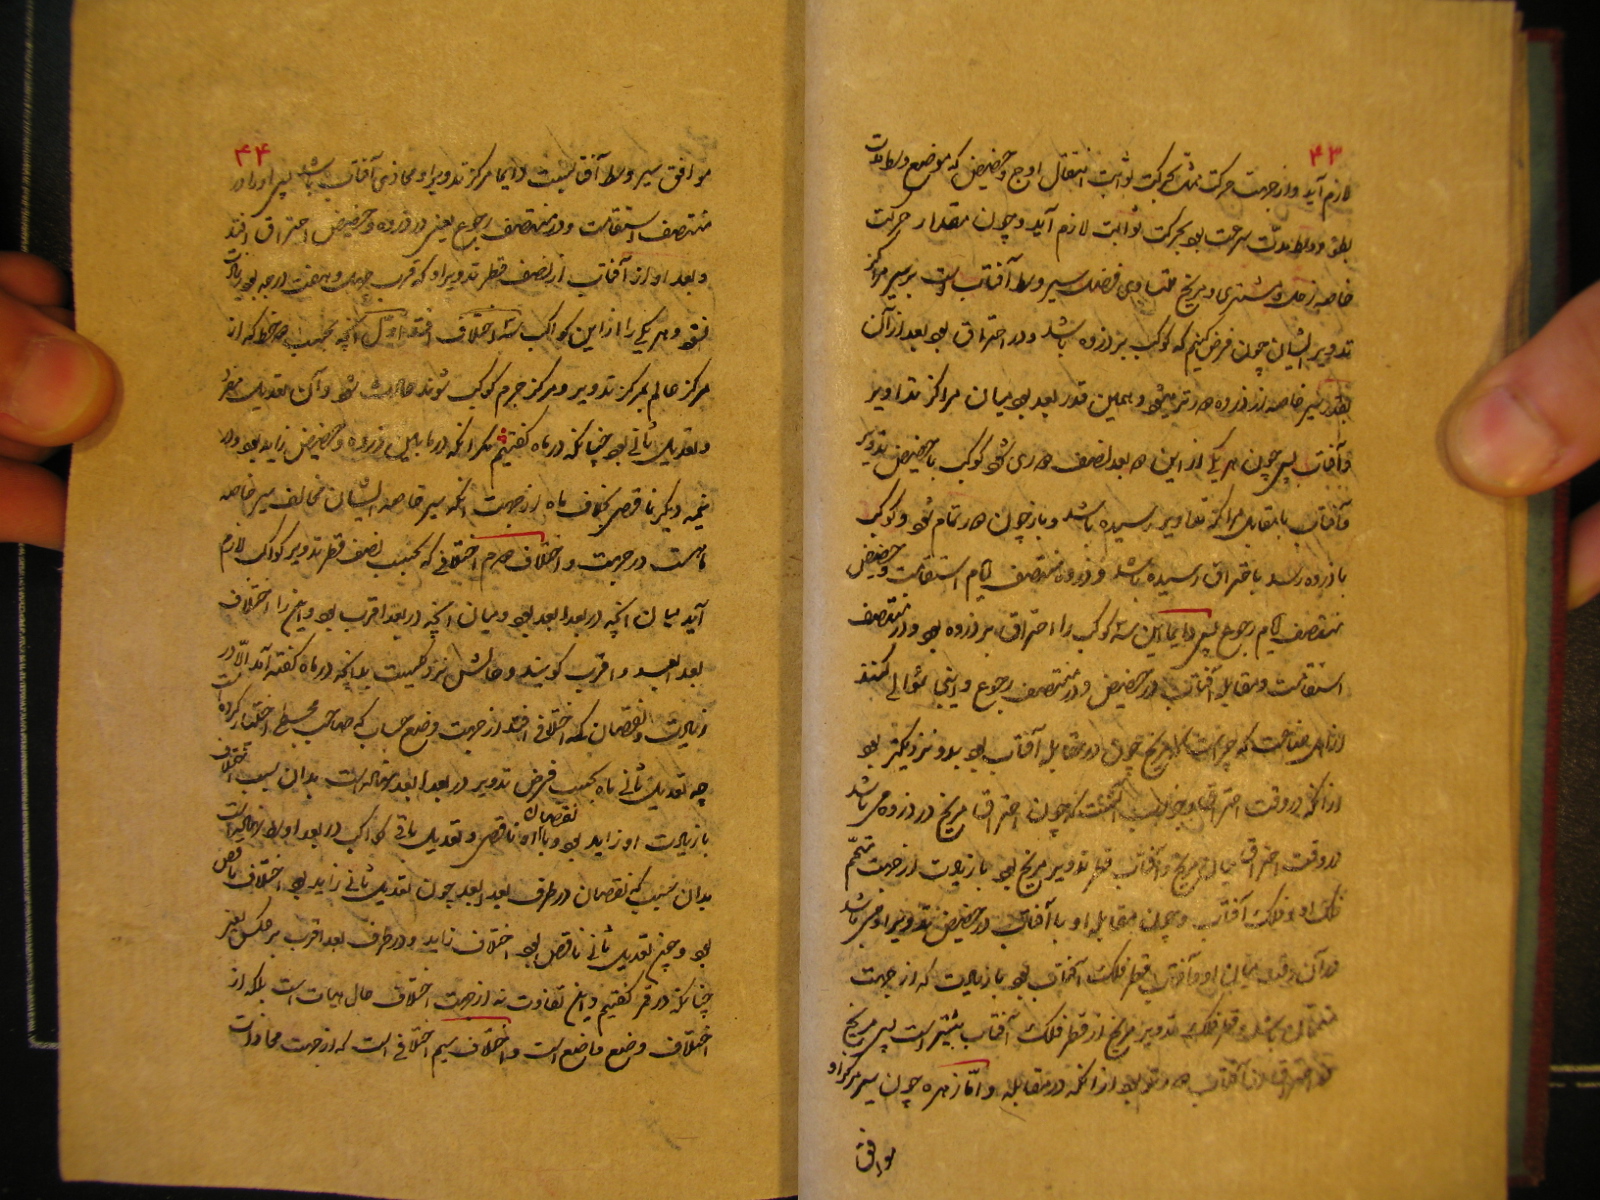 ۴۳
لازم آید و از جهت حرکت بحرکت ثوابت انتقال اوج و حضیض که موضع
بطؤ و وسط سرعت بود بحرکت ثوابت لازم آید و چون مقدار حرکت
خاصه زحل و مشتری و مریخ مساوی فضل سیر وسط آفتاب است بر سیر مراکز
تدویر ایشان چون فرض کنیم که کوکب بر ذروه باشد و در احتراق بود بعد از آن
بقدر سیر خاصه از ذروه دور تر میشود و بهمین قدر بعد بود میان مراکز تداویر
و آفتاب پس چون هر یکی از این دو بعد نصف دوری شود کوکب بحضیض تدویر
و آفتاب بمقابله مراکز تداویر رسیده باشد و باز چون دور تمام شود و کوکب
با ذروه رسد باحتراق رسیده باشد و ذروه منتصف ایام استقامت و حضیض
منتصف ایام رجوع پس دایما این سه کوکب را احتراق بر ذروه بود و در منتصف
استقامت و مقابله آفتاب در حضیض و در منتصف رجوع و اینجا سؤالی کنند
از اهل صناعت که چراست که مریخ چون در مقابله آفتاب بود بدو نزدیکتر بود
از آنکه در وقت احتراق و جواب آنست که چون احتراق مریخ در ذروه می باشد
در وقت احتراق میان مریخ و آفتاب قطر تدویر مریخ بود با زیادت از جهت متمم
فلک او و فلک آفتاب و چون مقابله او با آفتاب در حضیض تدویر او می باشد
در آن وقت میان او و آفتاب قطر فلک آفتاب بود با زیادت که از جهت
متممان باشد و قطر فلک تدویر مریخ از قطر فلک آفتاب بیشتر است پس مریخ
در احتراق از آفتاب دورتر بود از آنکه در مقابله و اما زهره چون سیر مرکز او
موافق
۴۴
موافق سیر وسط آفتابست و دایما مرکز تدویر او محاذی آفتاب باشد پس او را در
منتصف استقامت و در منتصف رجوع یعنی در ذروه و حضیض احتراق افتد
و بعد او از آفتاب از نصف قطر تدویر او که قرب چهل و هفت درجه بود زیادت
نشود و هر یکی را از این کواکب سه اختلاف افتد اول آنچه بحسب دو خط که از
مرکز عالم بمرکز تدویر و مرکز جرم کوکب شوند حادث شود و آن تعدیل مفرد
و تعدیل ثانی بود چنانکه در ماه گفتیم مگر آنکه در مابین ذروه و حضیض زاید بود و در
نیمه دیگر ناقص بخلاف ماه از جهت آنکه سیر خاصه ایشان مخالف سیر خاصه
ماهست در جهت و اختلاف دوم اختلافی که بحسب نصف قطر تدویر کواکب لازم
آید میان آنچه در بعد ابعد بود و میان آنچه در بعد اقرب بود و این را اختلاف
بعد ابعد و اقرب گویند و حالش نزدیکست بدانچه در ماه گفته آمد الا در
زیادت و نقصان که اختلافی افتد از جهت وضع حساب که صاحب مجسطی اختیار کرده است
چه تعدیل ثانی ماه بحسب فرض تدویر در بعد ابعد نهاده است بدان سبب اختلاف
با زیادت او زاید بود و با نقصان او ناقص و تعدیل ثانی کواکب در بعد اوسط نهاده است
بدان سبب که نقصان در طرف بعد ابعد چون تعدیل ثانی زاید بود اختلاف ناقص
بود و چون تعدیل ثانی ناقص بود اختلاف زاید و در طرف بعد اقرب بر عکس یعنی
چنانکه در قمر گفتیم و این تفاوت نه از جهت اختلاف حال هیات است بلکه از
اختلاف وضع واضع است و اختلاف سیم اختلافی است که از جهت محاذات